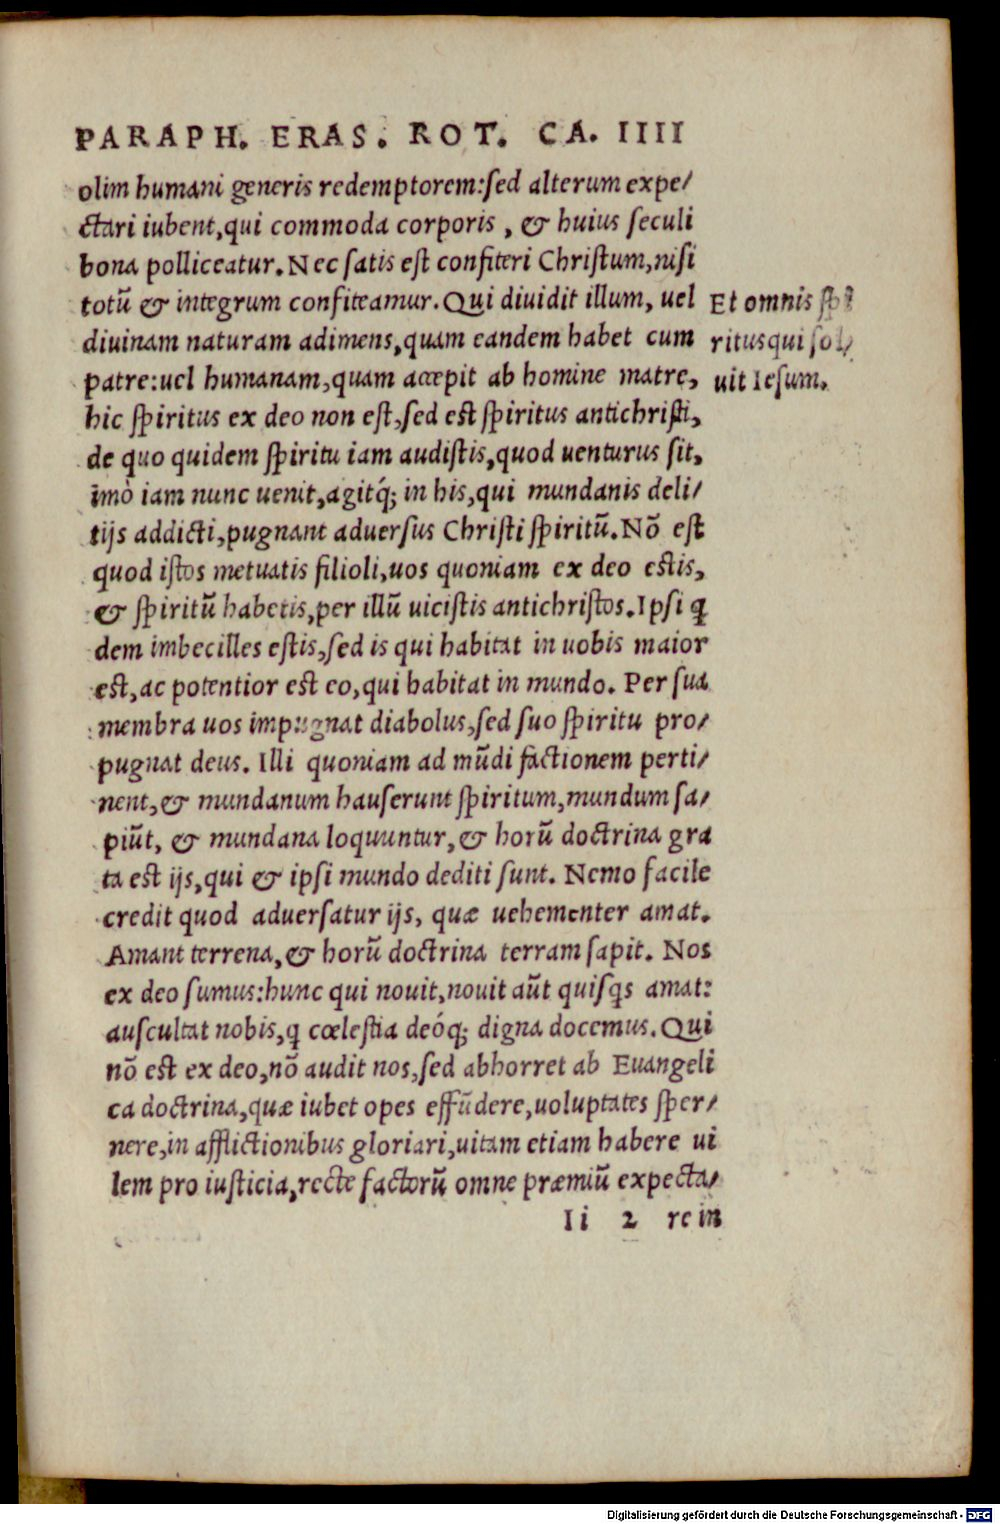 PARAPH. ERAS. ROT. CA. IIII
olim humani generis redemptorem:sed alterum expe/
ctari iubent,qui commoda corporis , & huius seculi
bona polliceatur.Nec satis est confiteri Christum,nisi
totū & integrum confiteamur.Qui diuidit illum, uel
diuinam naturam adimens,quam eandem habet cum
patre:uel humanam,quam accepit ab homine matre,
hic spiritus ex deo non est,sed est spiritus antichristi,
de quo quidem spiritu iam audistis,quod uenturus sit,
imò iam nunc uenit,agitq́; in his,qui mundanis deli/
tijs addicti,pugnant aduersus Christi spiritū.Nō est
quod istos metuatis filioli,uos quoniam ex deo estis,
& spiritū habetis,per illū uicistis antichristos.Ipsi ꝗ
dem imbecilles estis,sed is qui habitat in uobis maior
est,ac potentior est eo,qui habitat in mundo. Per sua
membra uos impugnat diabolus,sed suo spiritu pro/
pugnat deus. Illi quoniam ad mūdi factionem perti/
nent,& mundanum hauserunt spiritum,mundum sa/
piūt, & mundana loquuntur,& horū doctrina gra
ta est ijs,qui & ipsi mundo dediti sunt. Nemo facile
credit quod aduersatur ijs, quæ uehementer amat.
Amant terrena,& horū doctrina terram sapit. Nos
ex deo sumus:hunc qui nouit,nouit aūt quisqs amat:
auscultat nobis,ꝗ cœlestia deóq; digna docemus.Qui
nō est ex deo,nō audit nos,sed abhorret ab Euangeli
ca doctrina,quæ iubet opes effūdere,uoluptates sper/
nere,in afflictionibus gloriari,uitam etiam habere ui
lem pro iusticia,recte factorū omne præmiū expecta/
Ii 2 re in
Et omnis spi
ritus qui sol/
uit Iesum.
Digitalisierung gefördert durch die Deutsche Forschungsgemeinschaft - DFG